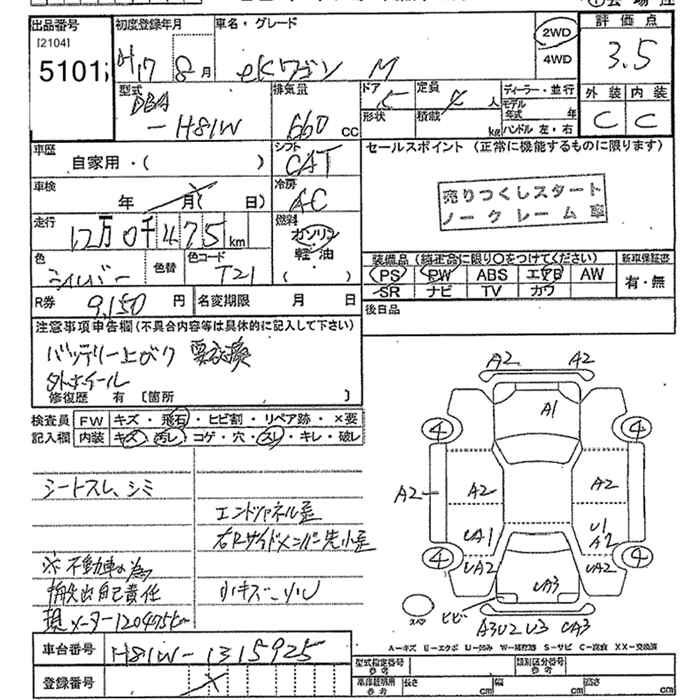 出品番号
[2104]
5101
初度登録年月
H17 8月
車名・グレード
eKワゴン M
2WD
4WD
評価点
3.5
外装 内装
C C
型式
DBA
-H81W
排気量
660 cc
ドア 5
定員 4 人
形状
積載 kg
ディーラー・並行
モデル年式 年
ハンドル 左・右
車歴
自家用・( )
シフト
CAT
セールスポイント (正常に機能するものに限ります)
売りつくしスタート
ノークレーム車
車検
年 月( 日)
冷房
AC
走行
12万0千475km
燃料
ガソリン
軽・油
( )
色
シルバー
色替
色コード
T21
装備品(純正品に限り○をつけてください)
PS PW ABS エアB AW
SR ナビ TV カワ
新車保証書
有・無
R券
9,150 円
名変期限 月 日
後日品
注意事項申告欄(不具合内容等は具体的に記入して下さい)
バッテリー上がり 要交換
外ホイール
修復歴 有 〔箇所 〕
検査員 FW キズ・飛石・ヒビ割・リペア跡・×要
記入欄 内装 キズ・汚レ・コゲ・穴・スレ・キレ・破レ
シートスレ、シミ
エンドパネル歪
右Rサイドメンバー先小歪
※不動車の為
搬出自己責任
小キズ・小U
現メーター120475km
A2 A2
A1
4 4
A2 A2 A2
UA1 U1
A2
4 UA2 UA2 4
UA3
ヒビ
スペア
A3U2 U3 UA3
A-キズ E-エクボ U-凹み W-補修跡 S-サビ C-腐食 XX-交換済
車台番号
H81W-1315925
登録番号
型式指定番号
参考
類別区分番号
参考
車庫証明用
参考
長さ cm
幅 cm
高さ cm